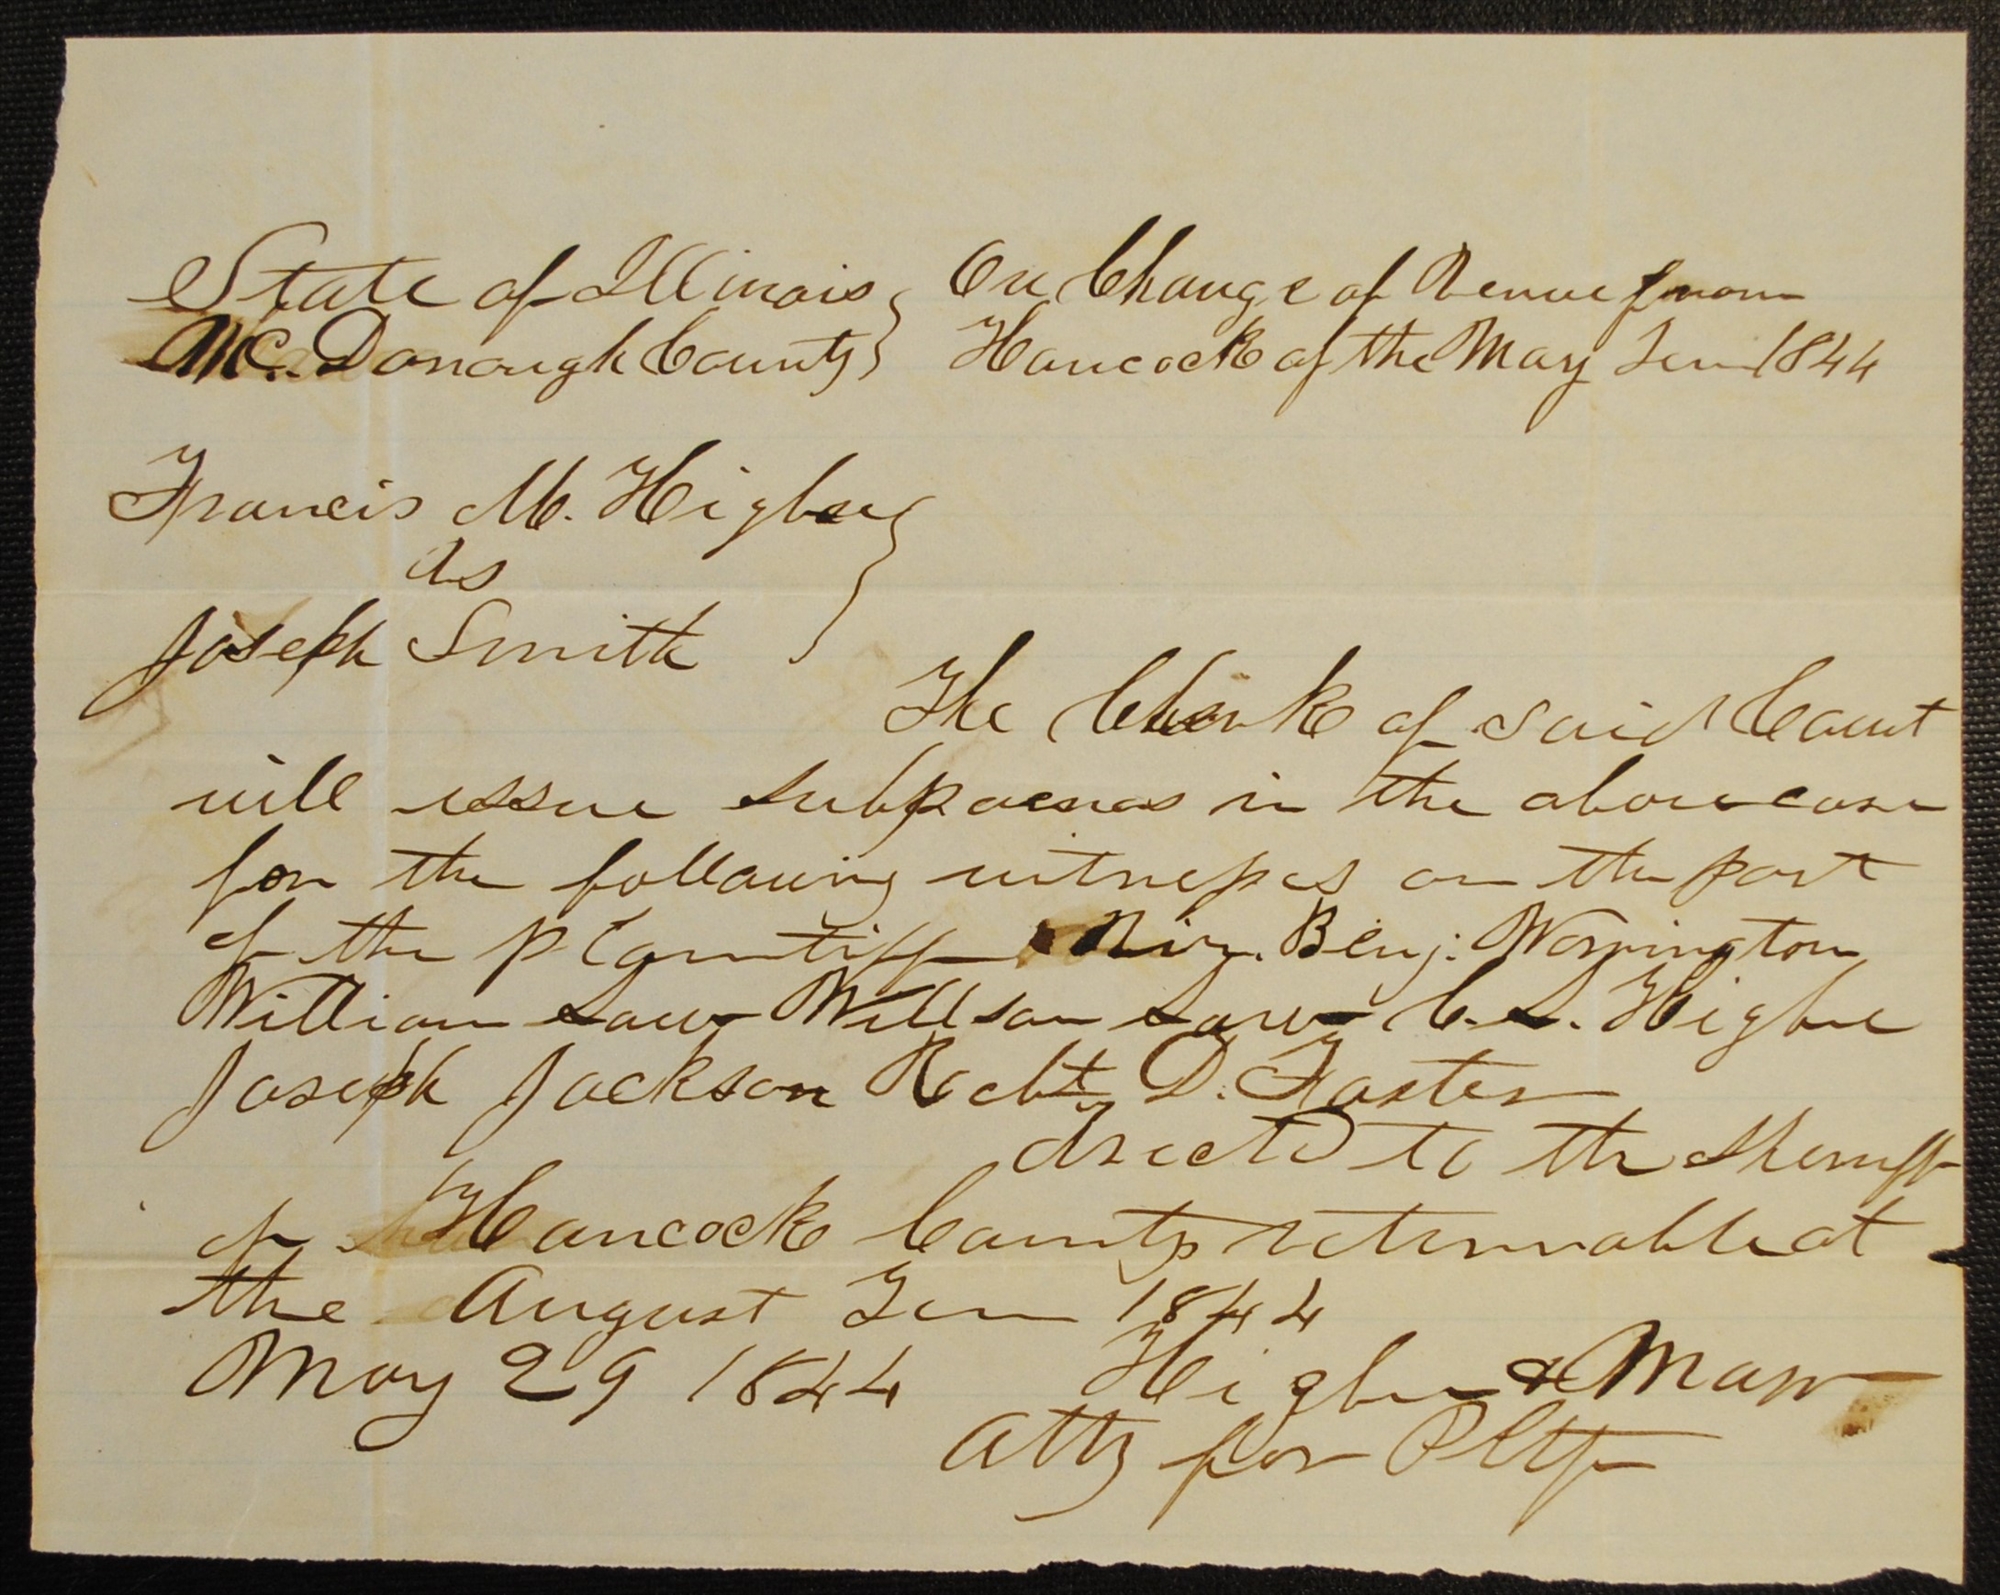 State of Illinois } On Change of Venue from
McDonough County } Hancock of the May Term 1844
Francis M. Higbee }
vs
Joseph Smith }
The Clerk of said Court
will issue subpoenas in the above case
for the following witnesses on the part
of the plaintiff Viz. Benj. Warrington
William Law Willson Law C. L. Higbee
Joseph Jackson Robt D. Foster
directed to the Sheriff
of Hancock County returnable at
the August Term 1844
May 29 1844 Higbee &
Atty for Pltff